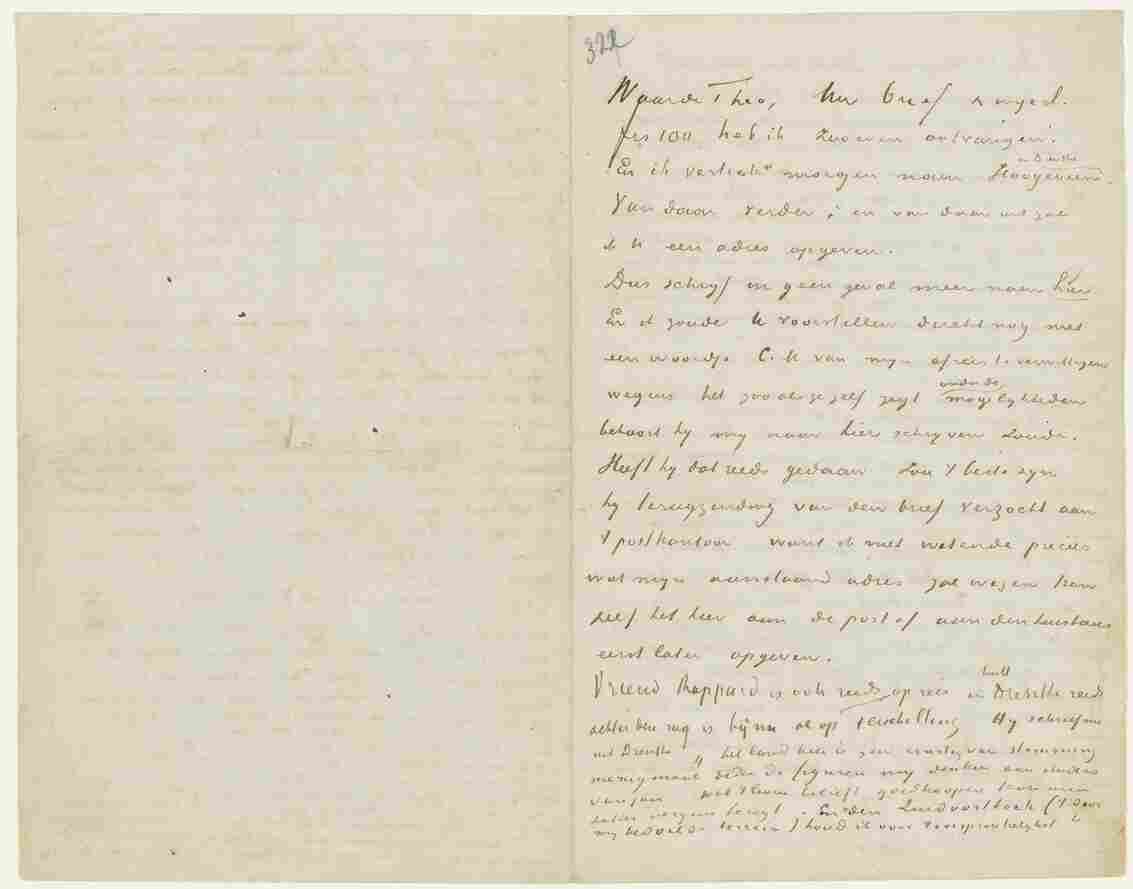 322
Waarde Theo, Uw brief & ingesl.
frs 100 heb ik zooeven ontvangen.
En ik vertrek morgen naar Hoogeveen in Drenthe.
Van daar verder, en van daar uit zal
ik U een adres opgeven.
Dus schryf in geen geval meer naar hier
En ik zoude U voorstellen direkt nog met
een woordje C.M. van myn afreis te verwittigen
wegens het zooals ge zelf zegt onder de mogelykheden
behoort hy my naar hier schryven zoude.
Heeft hy dat reeds gedaan zou 't beste zyn
hy terugzending van den brief verzocht aan
't postkantoor want ik niet wetende precies
wat myn aanstaand adres zal wezen kan
zelf het hier aan de post of aan den huisbaas
eerst later opgeven.
Vriend Rappard is ook reeds op reis heeft Drenthe reeds
achter den rug is bijna al op terschelling Hy schreef me
uit Drenthe „het land hier is zeer ernstig van stemming
menigmaal deden de figuren my denken aan studies
van jou wat t leven betreft goedkooper kan men
zeker nergens teregt. En den Zuidoosthoek ('t door
my bedoelde terrein) houd ik voor t oorspronkelykst"